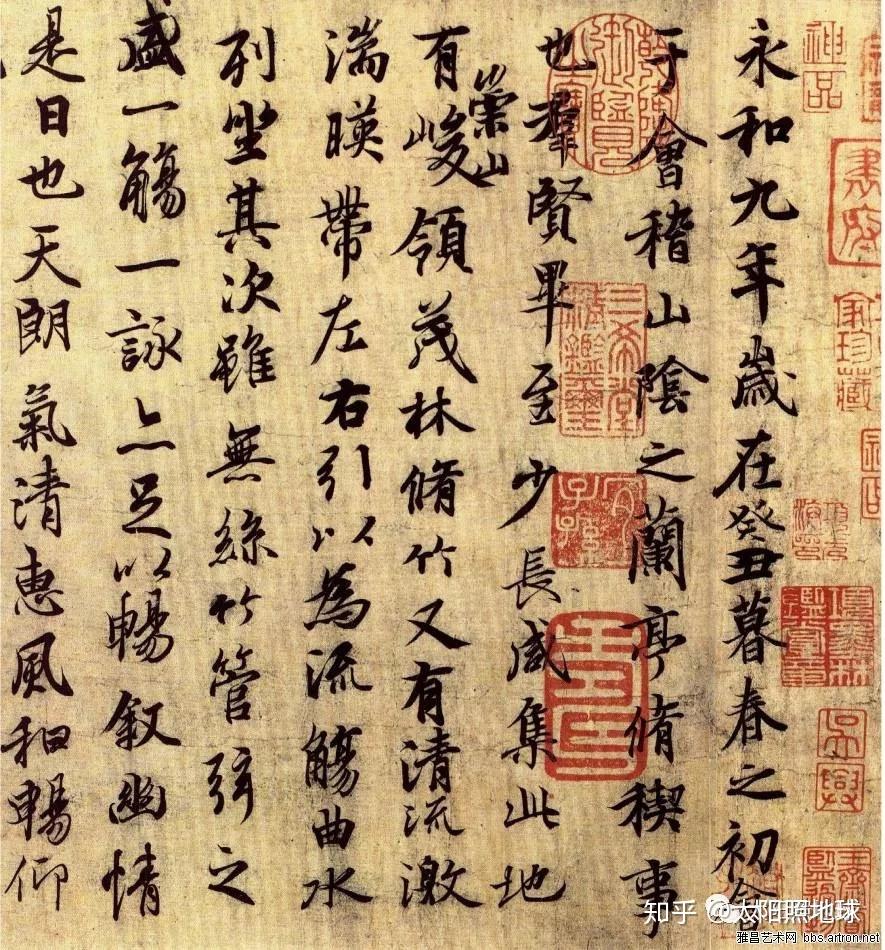 永和九年歲在癸丑暮春之初會
于會稽山陰之蘭亭脩稧事
也羣賢畢至少長咸集此地
有崇山峻領茂林脩竹又有清流激
湍暎帶左右引以為流觴曲水
列坐其次雖無絲竹管弦之
盛一觴一詠亦足以暢叙幽情
是日也天朗氣清惠風和暢仰
神品
書府
家珍藏
三希堂精鑑璽
宜子孫
吳興
知乎 @太阳照地球
雅昌艺术网 bbs.artron.net